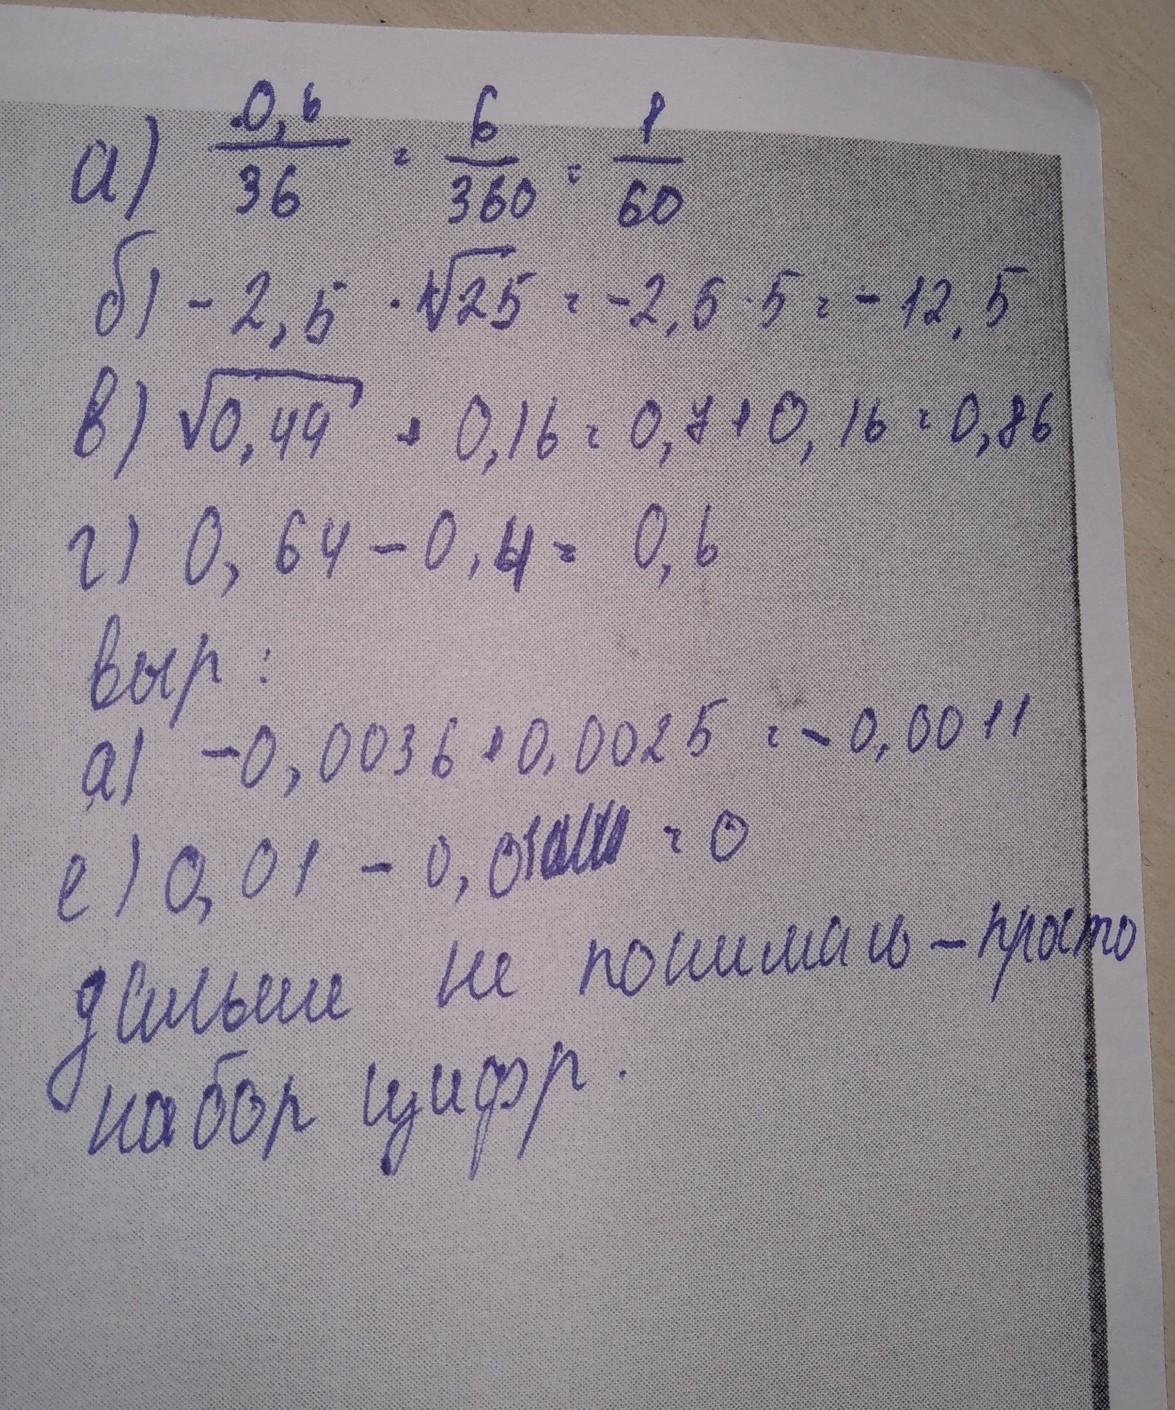 а) 0,6/36 = 6/360 = 1/60
б) -2,5 · √25 = -2,5 · 5 = -12,5
в) √0,49 + 0,16 = 0,7 + 0,16 = 0,86
г) 0,64 - 0,4 = 0,6
выр:
а) -0,0036 + 0,0025 = -0,0011
е) 0,01 - 0,01 = 0
дальше не понимаю - просто
набор цифр.